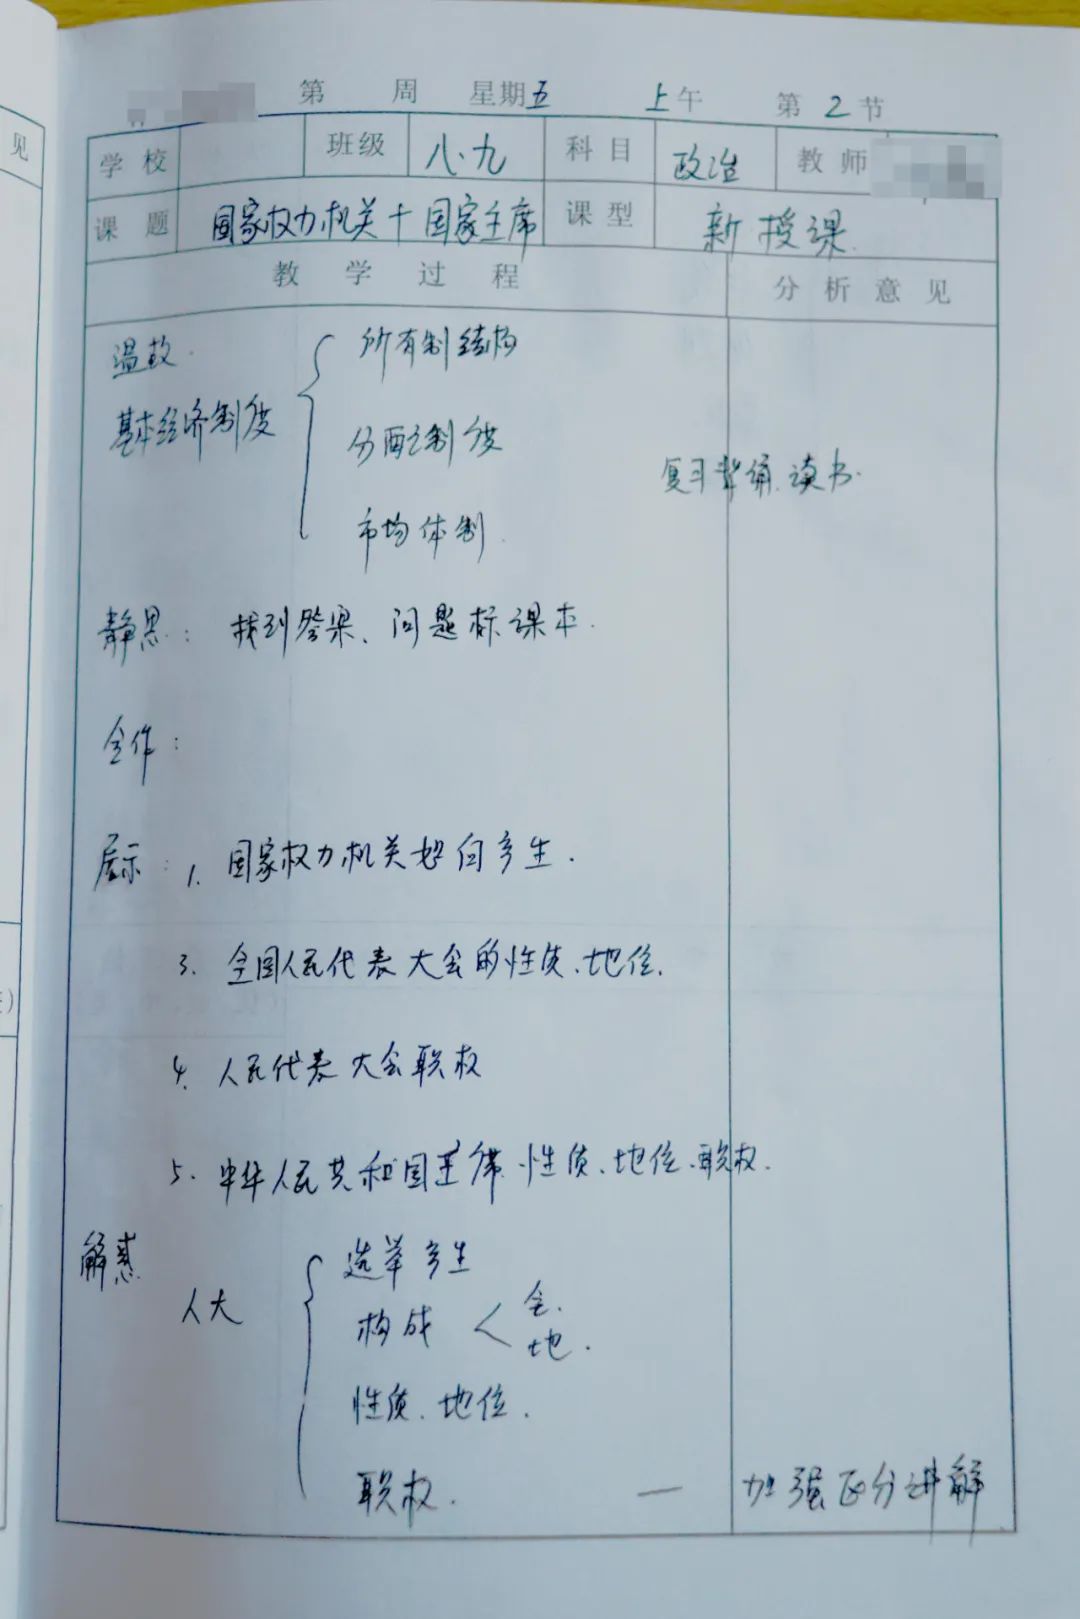 见
第 周 星期五 上午 第2节
学校 班级 八.九 科目 政治 教师
课题 国家权力机关+国家主席 课型 新授课
教学过程 分析意见
温故.
所有制结构
基本经济制度
分配制度
复习背诵、读书.
市场体制.
静思: 找到答案、问题标课本.
合作:
展示: 1. 国家权力机关如何产生.
3. 全国人民代表大会的性质、地位.
4. 人民代表大会职权
5. 中华人民共和国主席 性质、地位、职权.
解惑
选举产生
人大
构成 < 全.
地.
性质、地位.
职权. — 加强区分讲解